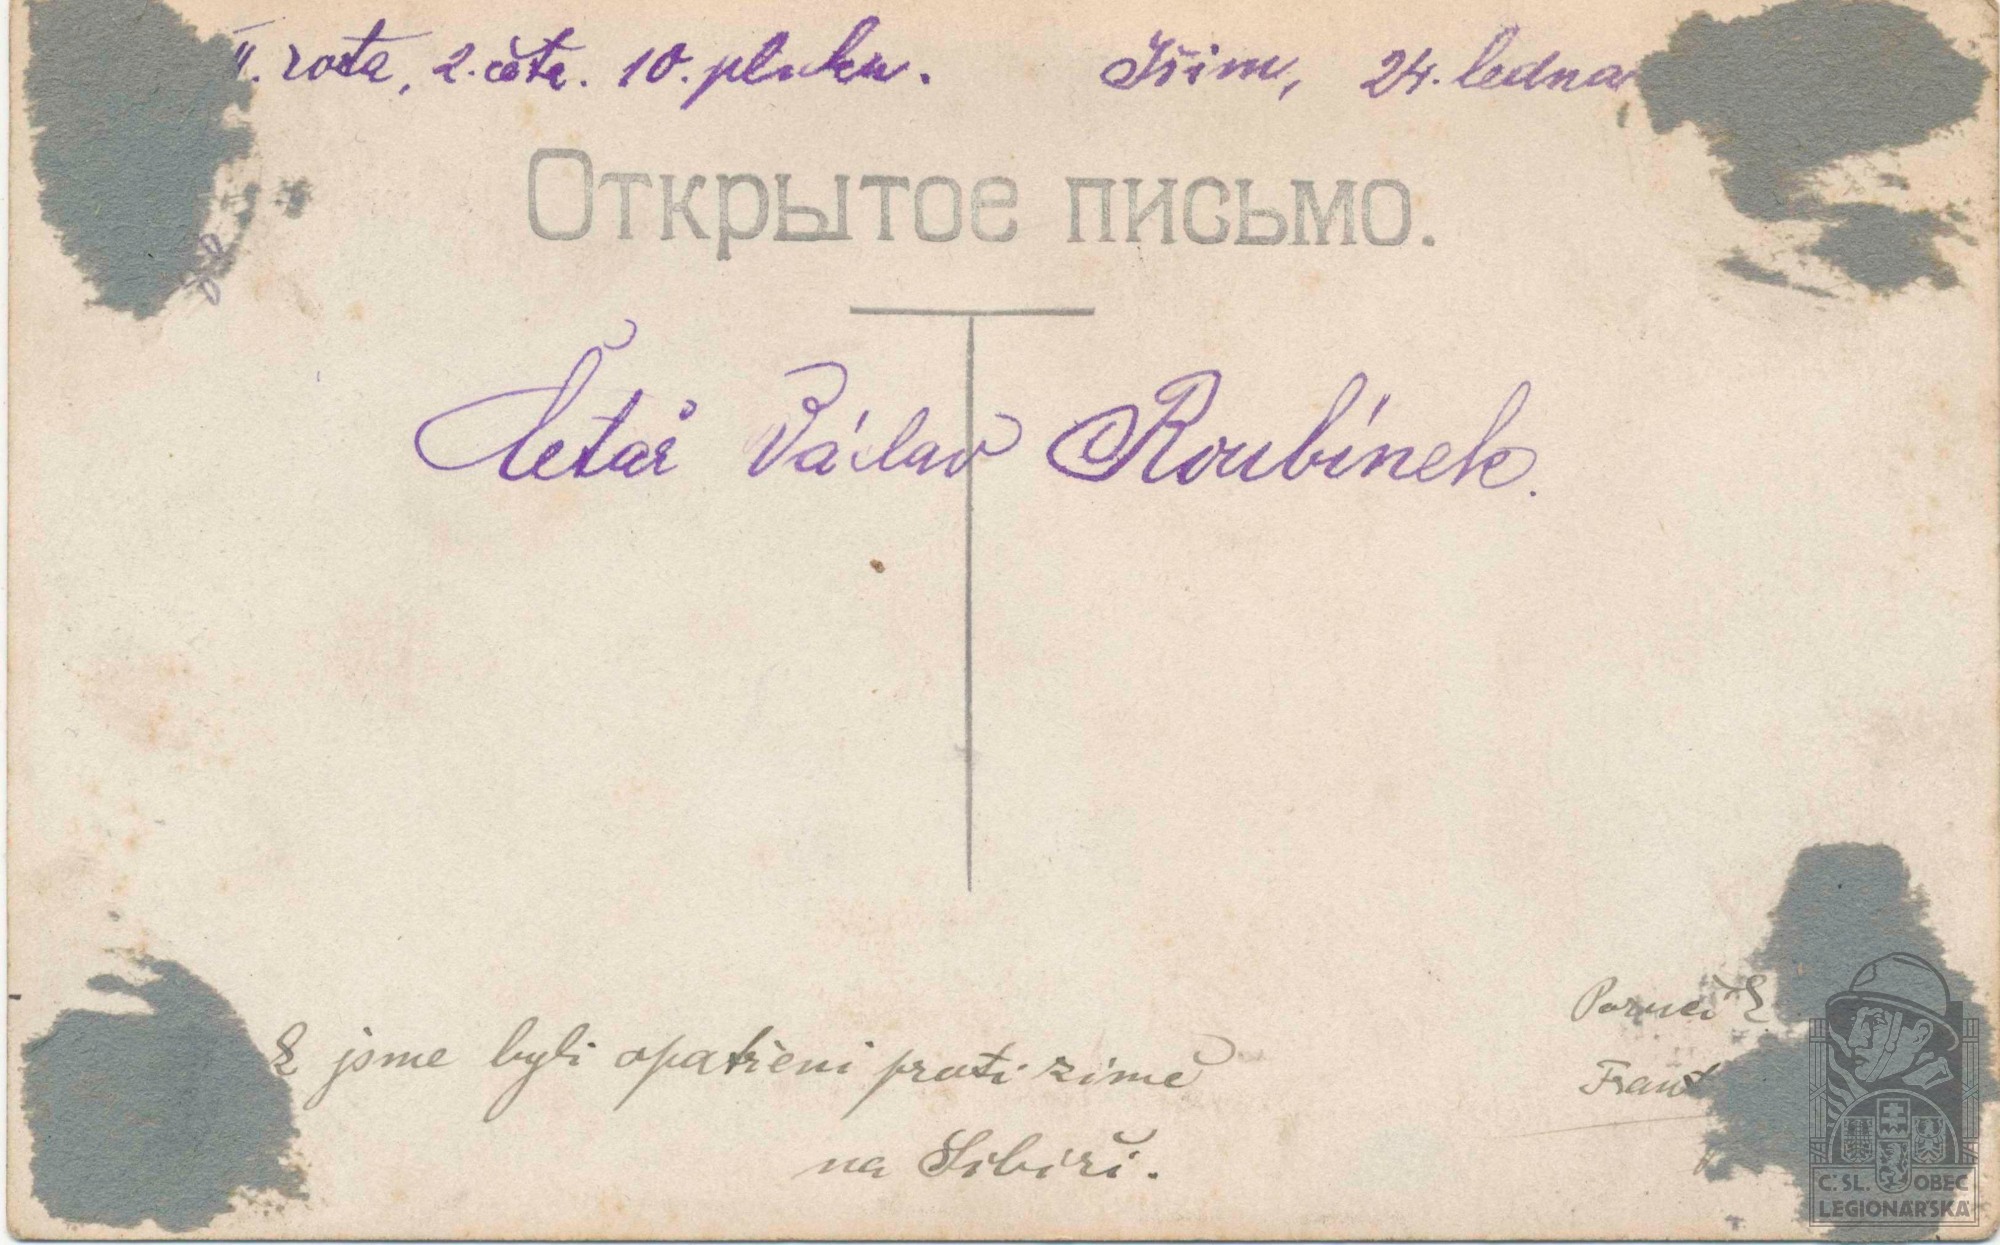 II. rota, 2. četa. 10. pluku. Išim, 24. ledna
Открытое письмо.
Četař Václav Roubínek.
jsme byli opatřeni proti zimě
na Sibiři.
Frant
C. SL. OBEC
LEGIONÁŘSKÁ